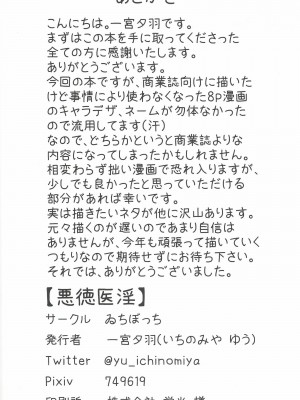 あとがき
こんにちは。一宮夕羽です。
まずはこの本を手に取ってくださった
全ての方に感謝いたします。
ありがとうございます。
今回の本ですが、商業誌向けに描いた
けど事情により使わなくなった8p漫画
のキャラデザ、ネームが勿体なかった
ので流用してます(汗)
なので、どちらかというと商業誌よりな
内容になってしまったかもしれません。
相変わらず拙い漫画で恐れ入りますが、
少しでも良かったと思っていただける
部分があれば幸いです。
実は描きたいネタが他に沢山あります。
元々描くのが遅いのであまり自信は
ありませんが、今年も頑張って描いていく
つもりなので期待せずにお待ち下さい。
それでは、ありがとうございました。
【悪徳医淫】
サークル ゐちぼっち
発行者 一宮夕羽(いちのみや ゆう)
Twitter @yu_ichinomiya
Pixiv 749619
印刷所 株式会社